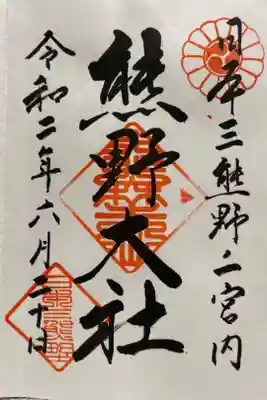 日本三熊野 宮内
熊野大社
令和二年六月二十日